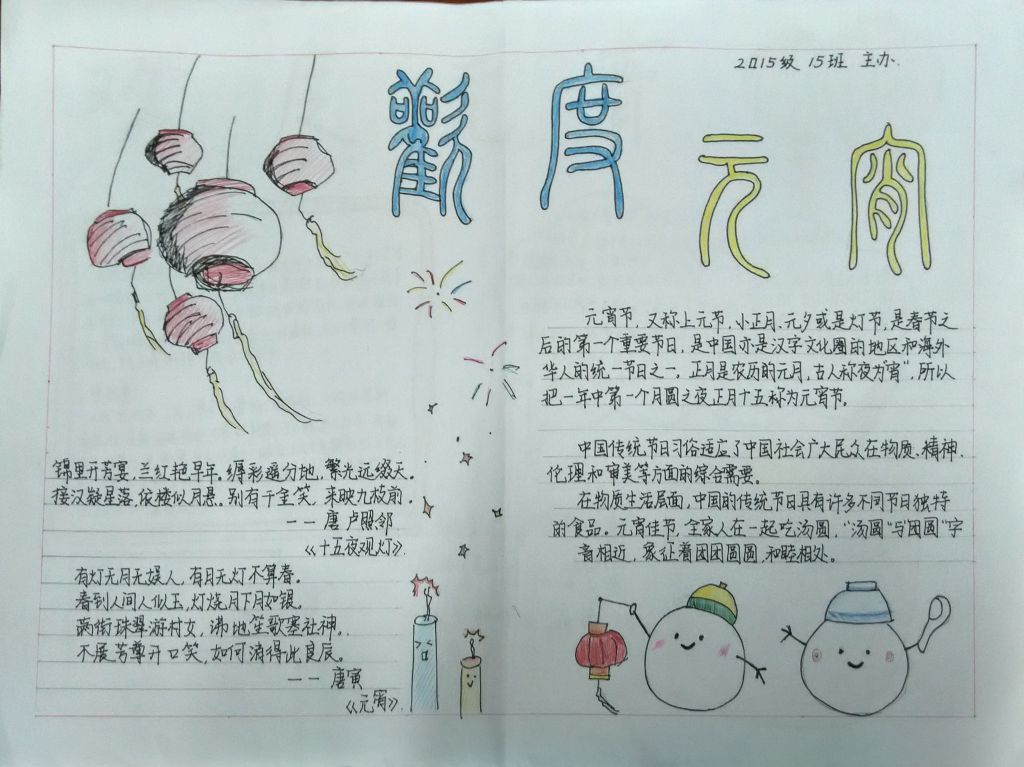 2015级 15班 主办.
觀度元宵
元宵节,又称上元节,小正月、元夕或是灯节,是春节之
后的第一个重要节日,是中国亦是汉字文化圈的地区和海外
华人的统一节日之一。正月是农历的元月,古人称夜为"宵",所以
把一年中第一个月圆之夜正月十五称为元宵节。
中国传统节日习俗适应了中国社会广大民众在物质、精神、
伦理和审美等方面的综合需要。
在物质生活层面,中国的传统节日具有许多不同节日独特
的食品。元宵佳节,全家人在一起吃汤圆,"汤圆"与"团圆"字
音相近,象征着团团圆圆,和睦相处。
锦里开芳宴,兰红艳早年。缛彩遥分地,繁光远缀天。
接汉疑星落,依楼似月悬。别有千金笑,来映九枝前。
——唐 卢照邻
《十五夜观灯》
有灯无月无娱人,有月无灯不算春。
春到人间人似玉,灯烧月下月如银。
满街珠翠游村女,沸地笙歌塞社神。
不展芳尊开口笑,如何消得此良辰。
——唐寅
《元宵》